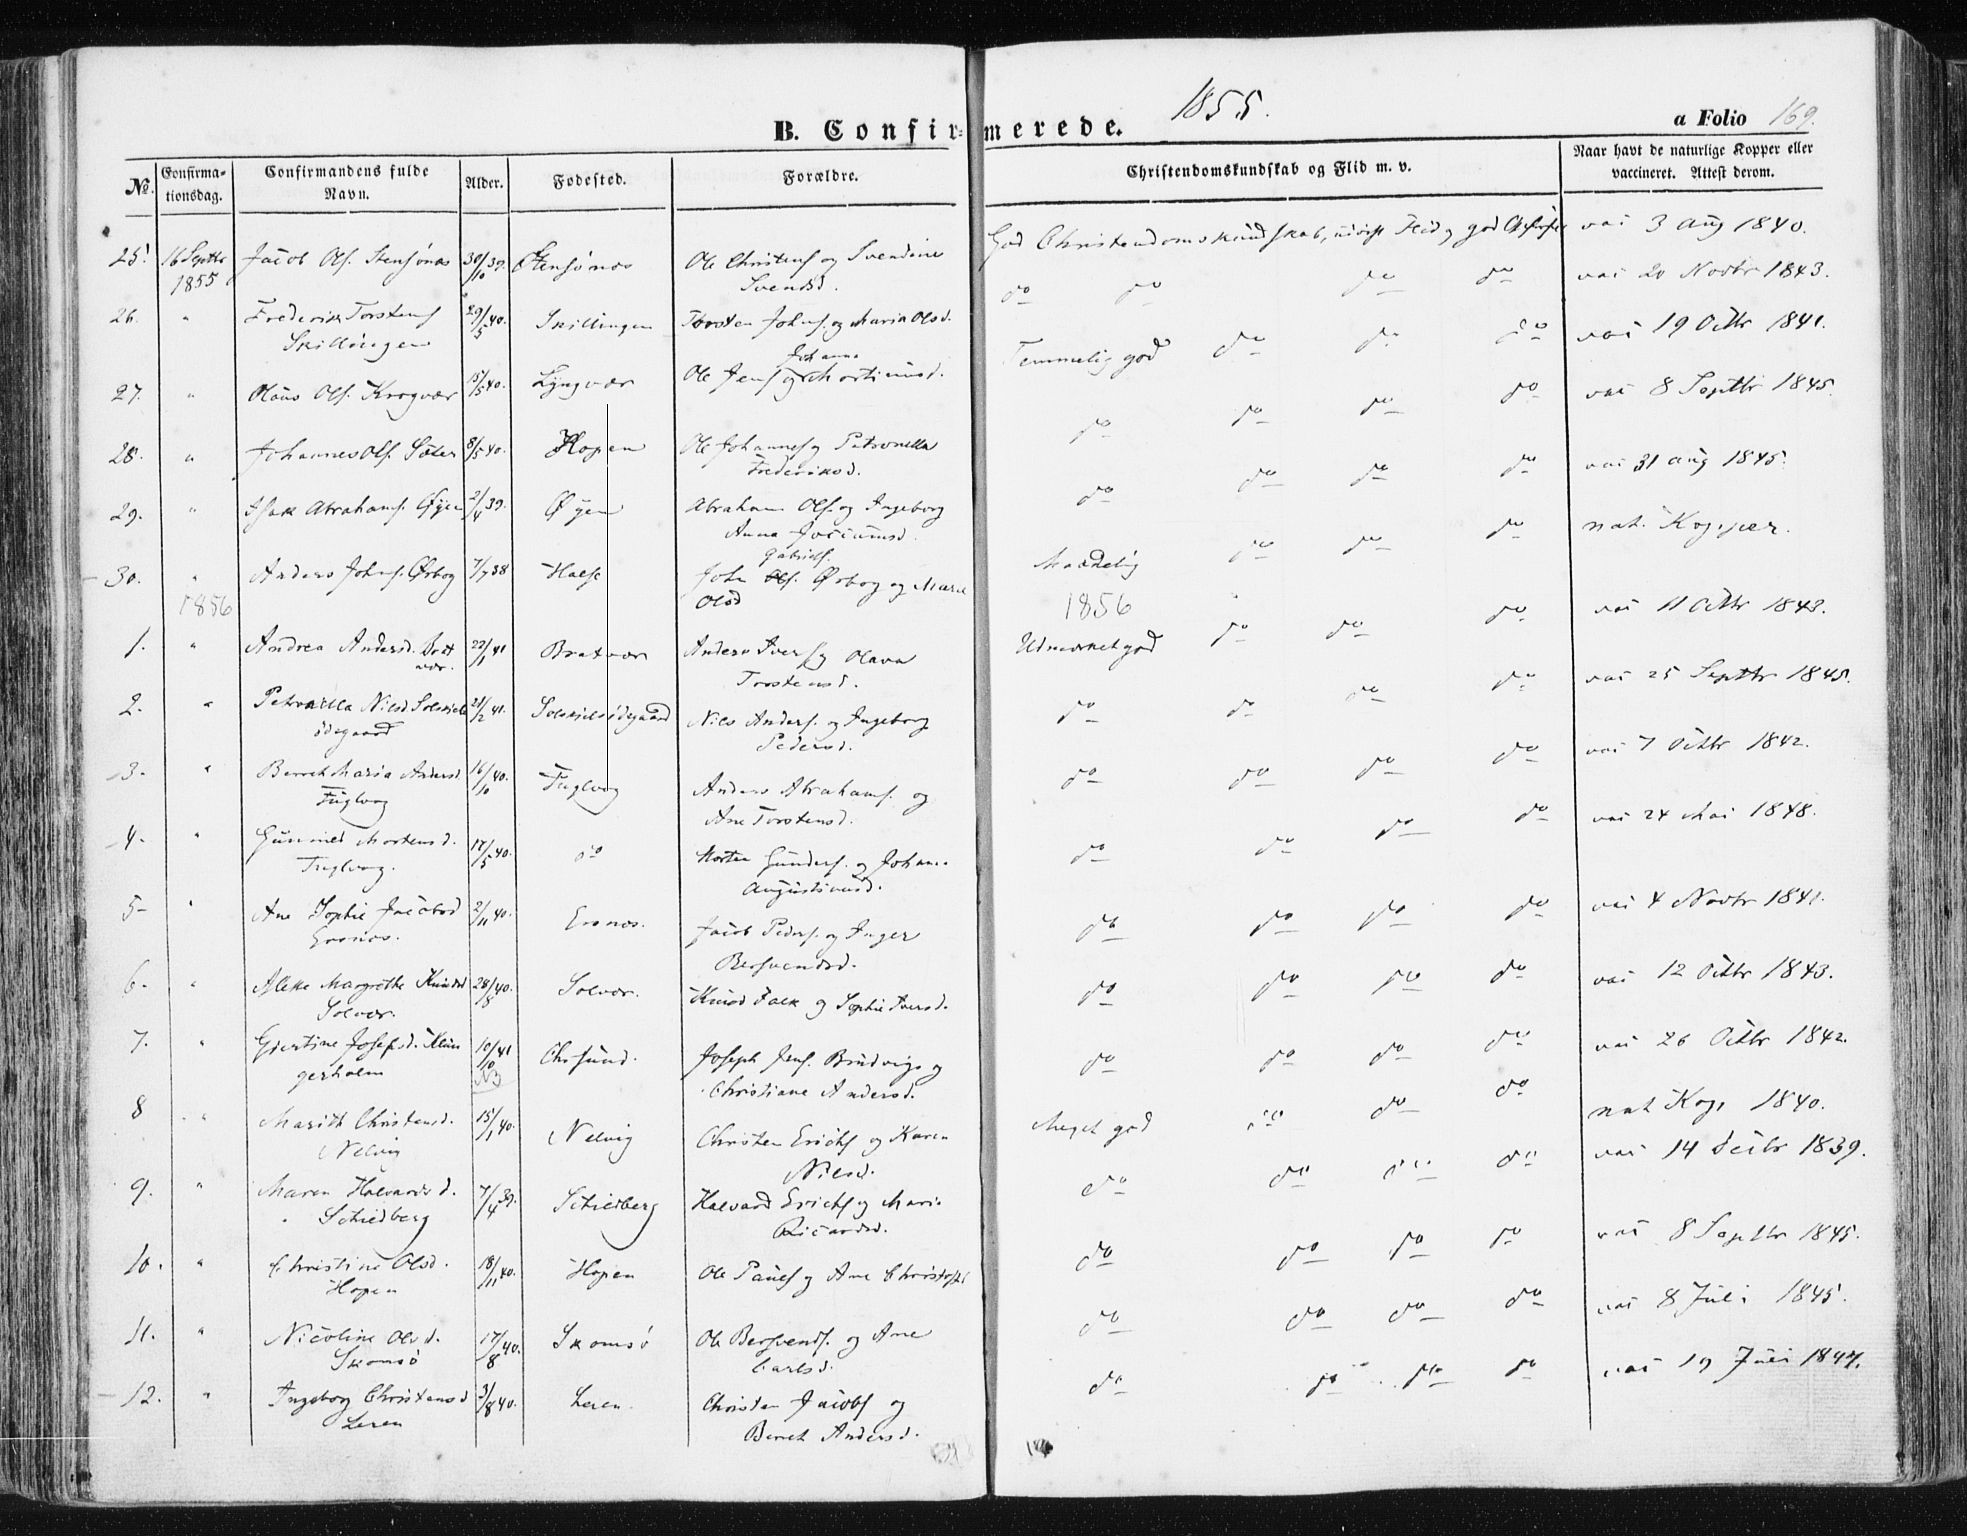 1855.
B. Confirmerede.
a Folio 169.
No.
Confirmationsdag.
Confirmandens fulde Navn.
Alder.
Fødested.
Forældre.
Christendomskundskab og Flid m. v.
Naar havt de naturlige Kopper eller vaccineret. Attest derom.
25. 16 Septbr 1855 Jacob Ols. Stensønes 30/10 39. Stensønes Ole Christens og Svendine Svendsd. God Christendomskundskab, udvist Flid og god vac 3 Aug 1840.
26. " Frederik Torstens Skillingen 29/5 40. Skillingen Torsten Johns. og Maria Olsd. do do do do vac 20 Novbr 1843.
27. " Olaus Ols. Krogvær 15/5 40. Lyngvær Ole Jens og Johanna Mortinusd. Temmelig god do do do vac 19 Octbr 1841.
28. " Johannes Ols. Sæter 8/5 40. Hopen Ole Johannes og Petronella Frederiksd. do do do do vac 8 Septbr 1845.
29. " Isak Abrahams. Øyen 2/4 39. Øyen Abraham Ols. og Ingeborg Anna Jocumsd. do do do do vac 31 Aug 1845.
30. " Anders Johns. Ørbog 7/7 38 Halse John Gabriels. Ørbog og Maria Olsd Maadelig do do do nat. Kopper.
1856
1856
1. " Andrea Andersd. Bratvær. 22/1 41 Bratvær Anders Ivers og Olava Torstensd. Udmærket god do do do vac 11 Octbr 1843.
2. " Petronella Nilsd Solskjelsødegaard 21/2 41. Solskjelsødegaard Nils Anders. og Ingeborg Pedersd. do do do do vac 25 Septbr 1845.
3. " Berret Maria Andersd. Fuglvog 16/10 40. Fuglvog Anders Abrahams. og Ane Torstensd. do do do do vac 7 Octbr 1842.
4. " Gunnild Mortensd. Fuglvog. 17/5 40. do Morten Gunders. og Johana Augustinusd. do do do do vac 24 Mai 1848.
5 " Ane Sophie Jacobsd Ersnes. 2/11 40. Ersnes. Jacob Peders. og Inger Bersvendsd. do do do do vac 4 Novbr 1841.
6. " Aleke Margrethe Knudsd Solvær. 28/8 40. Solvær. Knud Falk og Sophie Iversd. do do do do vac 12 Octbr 1843.
7. " Giertine Josephsd. Klungerholm 10/10 41 Chrsund. Joseph Jens. Brudvigs og Christiane Andersd. do do do do vac 26 Octbr 1842.
8 " Marith Christensd. Nelvig 15/1 40. Nelvig Christen Erichs og Karen Nilsd. Meget god do do do nat Kop. 1840.
9. " Maren Halvardsd. Schiedberg 7/4 39. Schiedberg Halvard Erichs og Maria Ricardsd. do do do do vac 14 Decbr 1839.
10. " Christine Olsd. Hopen 18/11 40. Hopen Ole Pauls og Ane do do do do vac 8 Septbr 1845.
11. " Nicoline Olsd. Skomsø 17/8 40. Skomsø Ole Bersvends. og Ane Carlsd. do do do do vac 8 Juli 1845.
12. " Ingeborg Christensd Leren 3/8 40. Leren. Christen Jacobs og Berret Andersd. do do do do vac 19 Juli 1847.